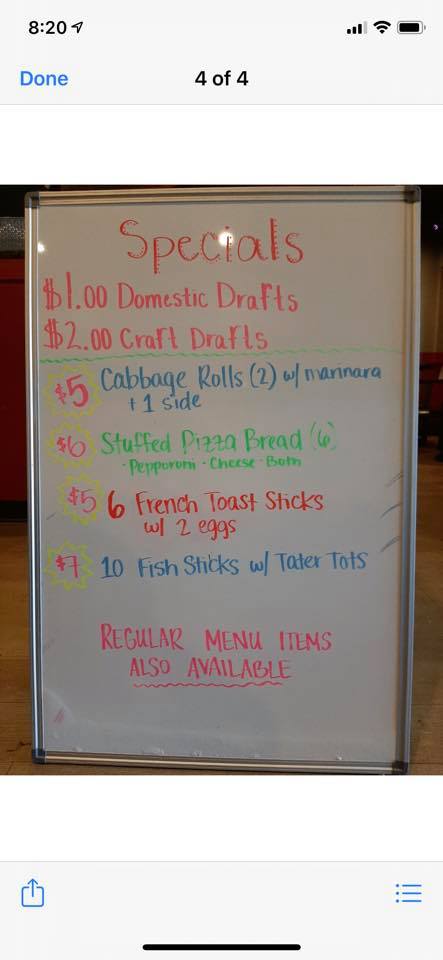 8:20
Done
4 of 4
Specials
$1.00 Domestic Drafts
$2.00 Craft Drafts
$5 Cabbage Rolls (2) w/ marinara
+ 1 side
$6 Stuffed Pizza Bread (6)
· Pepporoni · Cheese · Both
$5 6 French Toast Sticks
w/ 2 eggs
$7 10 Fish Sticks w/ Tater Tots
REGULAR MENU ITEMS
ALSO AVAILABLE